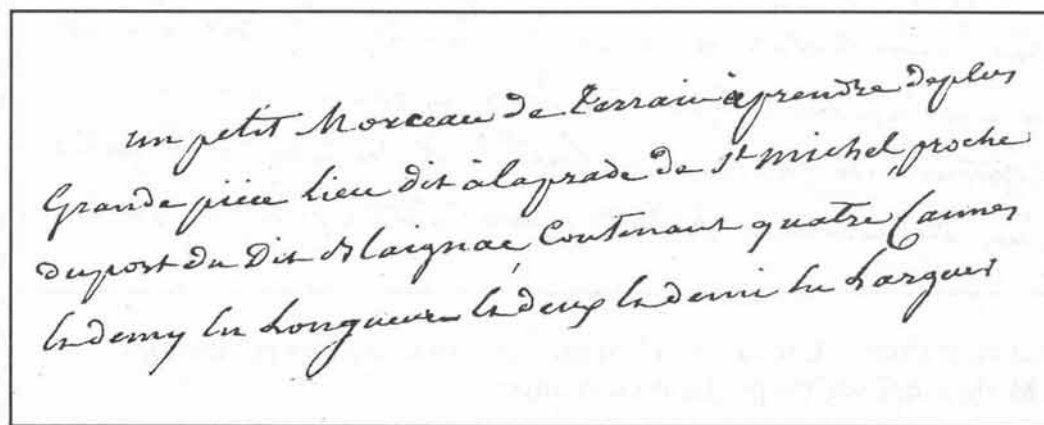 un petit Morceau de Terrain à prendre de plus
Grande pièce Lieu dit à la prade de St michel, proche
du port du Dit Blaignac Contenant quatre Cannes
et demy en Longueur et deux et demi en Largeur